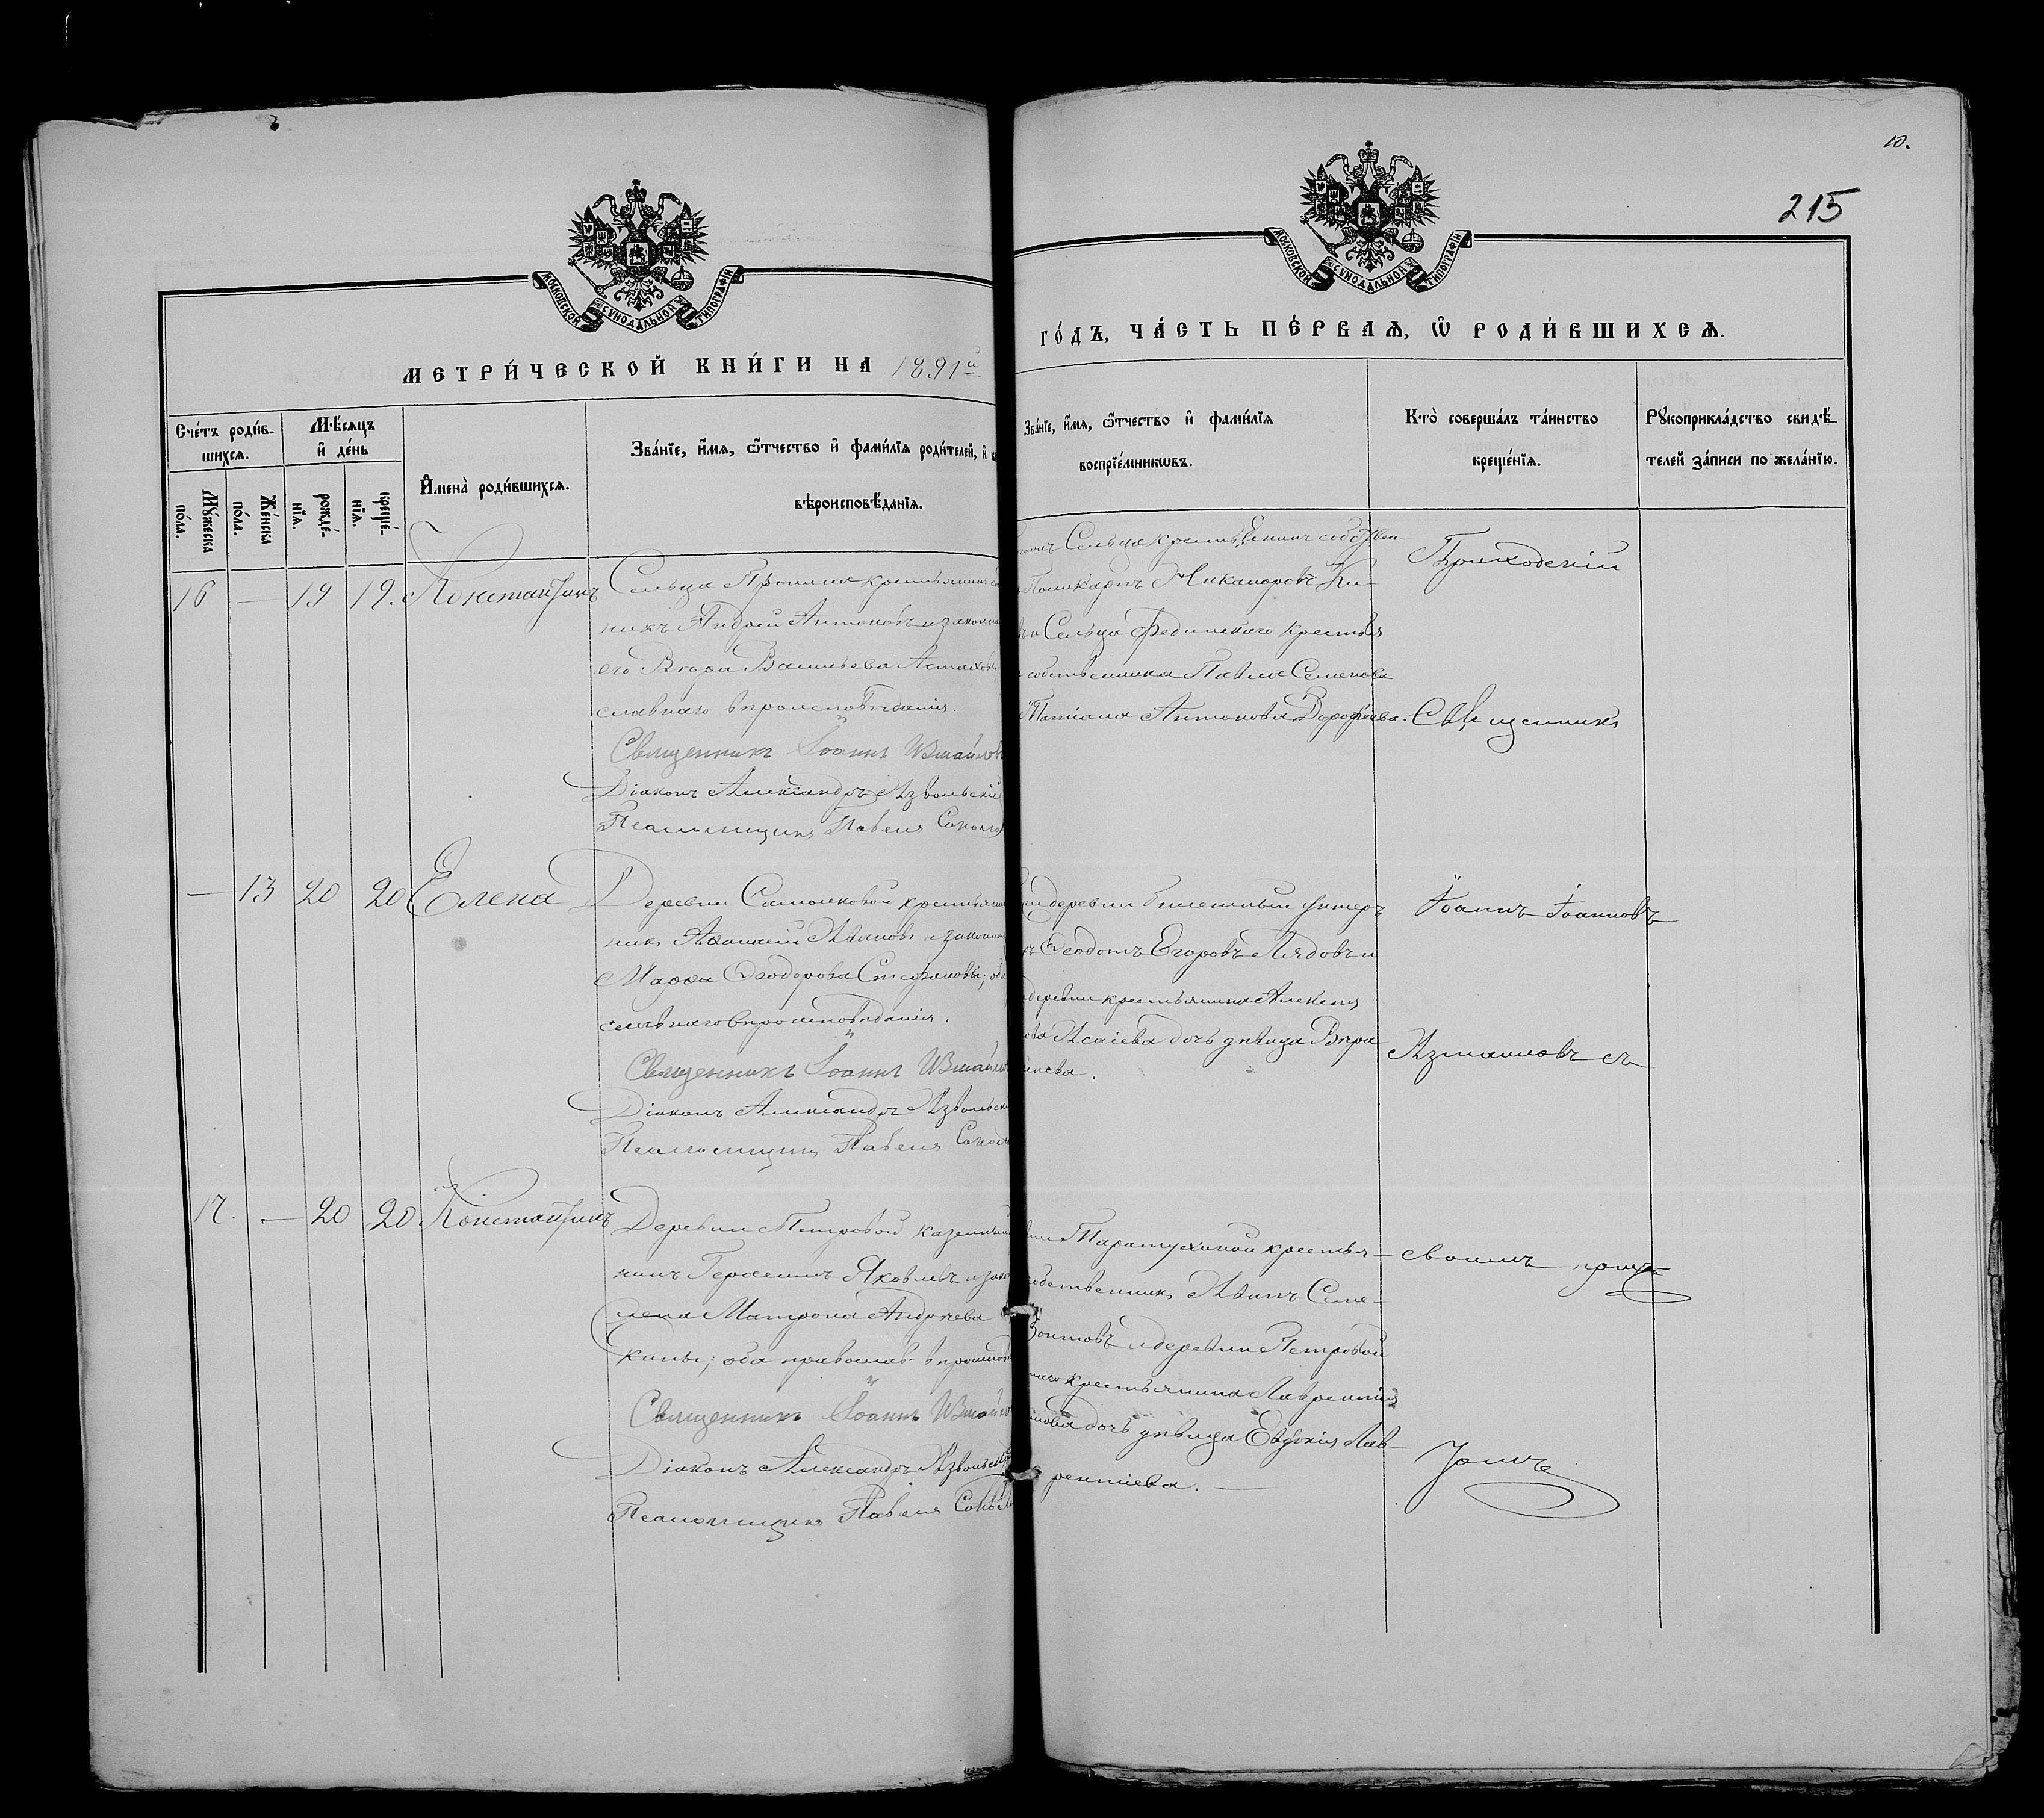 10.
215
МОСКОВСКОЙ СѴНОДАЛЬНОЙ ТИПОГРАФІИ
МОСКОВСКОЙ СѴНОДАЛЬНОЙ ТИПОГРАФІИ
МЕТРИ́ЧЕСКОЙ КНИ́ГИ НА 1891й
ГО́ДЪ, ЧА́СТЬ ПЕ́РВАѦ, Ѽ РОДИ́ВШИХСѦ.
Сче́тъ роди́в-
шихсѧ.
Мѣ́сѧцъ
и҆ де́нь
Мꙋ́жеска
по́ла.
Же́нска
по́ла.
рожде́-
нїѧ.
креще́-
нїѧ.
И҆мена̀ роди́вшихсѧ.
Зва́нїе, и҆́мѧ, ѻ҆́тчество и҆ фами́лїѧ роди́телей, и҆
вѣроисповѣ́данїѧ.
Зва́нїе, и҆́мѧ, ѻ҆́тчество и҆ фами́лїѧ
воспрїе́мникѡвъ.
Кто̀ соверша́лъ та́инство
креще́нїѧ.
Рꙋкоприкла́дство свидѣ́-
телей за́писи по жела́нїю.
16 — 19 19. Константинъ
Сельца крестьянинъ
никъ Андрей Антоновъ и законная
его Васильева
славнаго вѣроисповѣданія.
Священникъ Іоаннъ Измайловъ
Діаконъ Александръ Извольскій
Псаломщикъ Павелъ Соколов
Сельца крестьянинъ собствен-
Поликарпъ Никаноровъ
и Сельца Фединскаго крестья
собственника Павла Семенова
Татіана Антонова Дорофеева.
Приходскій
Священникъ
— 13 20 20 Елена
Деревни крестьянин
никъ Иванов и законная
Марѳа Ѳеодорова Стефановы;
славнаго вѣроисповѣданія.
Священникъ Іоаннъ Измайлов
Діаконъ Александръ Извольскій
Псаломщикъ Павелъ Соколов
деревни билетный унтеръ
Ѳеодотъ Егоровъ Лядовъ и
деревни крестьянина Алексія
Исаіева дочь дѣвица Вѣра
Іоаннъ Іоанновъ
Измаиловъ съ
17. — 20 20 Константинъ
Деревни Петровой казенный
нинъ Герасимъ Яковлевъ и закон
жена Матрона Андреева
кины; оба православ. вѣроисповѣд
Священникъ Іоаннъ Измайлов
Діаконъ Александръ Извольскій
Псаломщикъ Павелъ Соколов
Таратухиной крестья-
собственникъ Иванъ Семе-
и деревни Петровой
крестьянина Лаврентія
дочь дѣвица Евдокія Лав-
рентіева. —
своимъ прич-
томъ